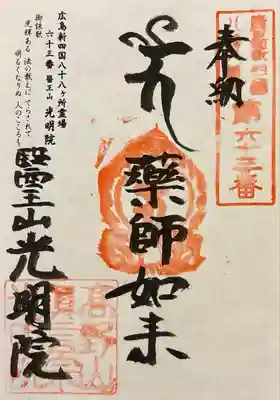 奉納
第六十三番
薬師如来
醫王山光明院
広島新四国八十八ヶ所霊場
六十三番 醫王山 光明院
御詠歌
光輝ある 法の教えに てらされて
明るくなりぬ 人のこころも
高野山